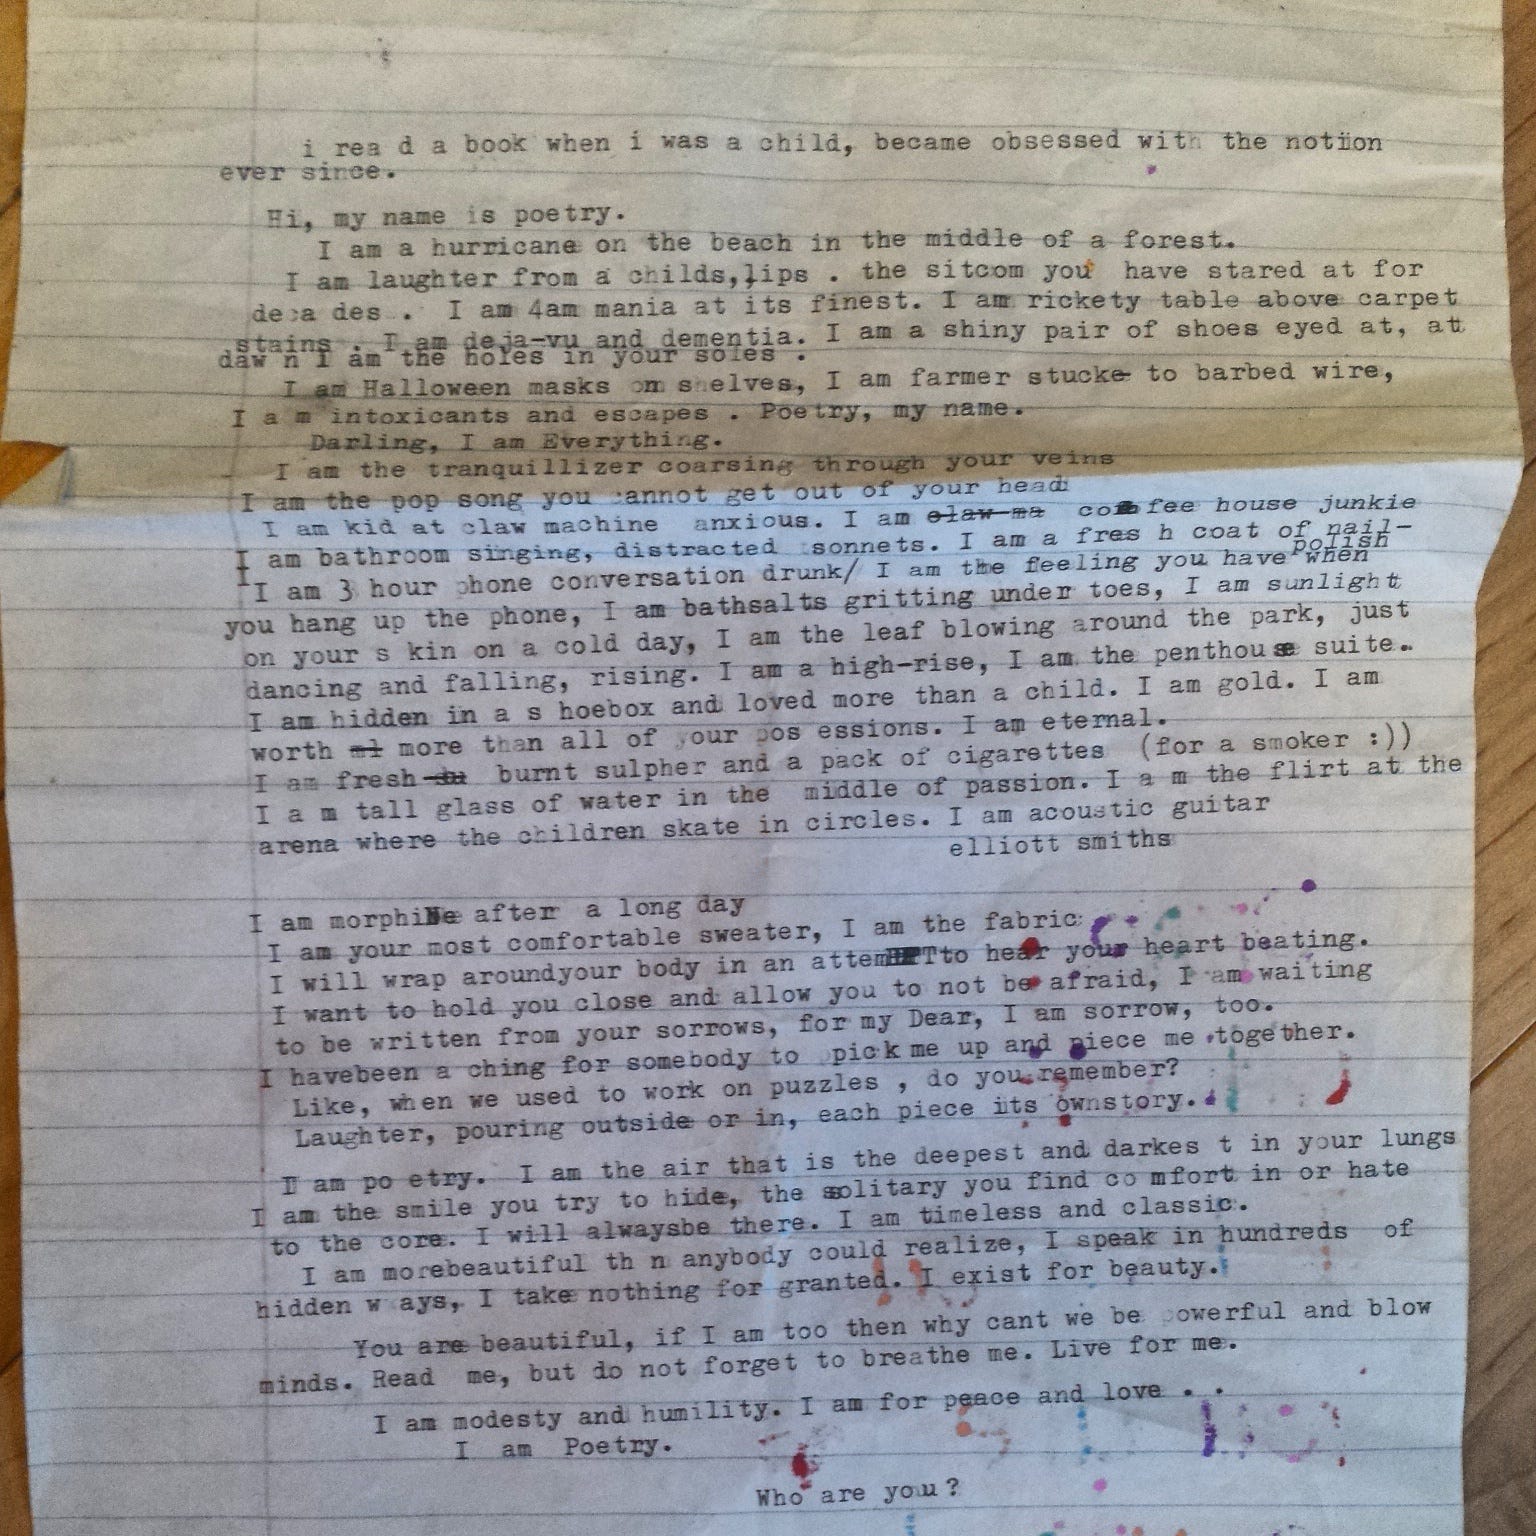 i rea d a book when i was a child, became obsessed with the notiion
ever since.
Hi, my name is poetry.
I am a hurricane on the beach in the middle of a forest.
I am laughter from a childs,lips . the sitcom you have stared at for
deca des . I am 4am mania at its finest. I am rickety table above carpet
stains . I am deja-vu and dementia. I am a shiny pair of shoes eyed at, att
daw n I am the holes in your soles .
I am Halloween masks on shelves, I am farmer stucke to barbed wire,
I a m intoxicants and escapes . Poetry, my name.
Darling, I am Everything.
I am the tranquillizer coarsing through your veins
I am the pop song you cannot get out of your head
I am kid at claw machine anxious. I am claw ma coffee house junkie
I am bathroom singing, distracted sonnets. I am a fres h coat of nail-
polish
I am 3 hour phone conversation drunk/ I am the feeling you have when
you hang up the phone, I am bathsalts gritting under toes, I am sunlight
on your s kin on a cold day, I am the leaf blowing around the park, just
dancing and falling, rising. I am a high-rise, I am the penthouse suite..
I am hidden in a s hoebox and loved more than a child. I am gold. I am
worth ml more than all of your pos essions. I am eternal.
I am fresh burnt sulpher and a pack of cigarettes (for a smoker :))
I a m tall glass of water in the middle of passion. I a m the flirt at the
arena where the children skate in circles. I am acoustic guitar
elliott smiths
I am morphiNe after a long day
I am your most comfortable sweater, I am the fabric
I will wrap aroundyour body in an attemPTto hear your heart beating.
I want to hold you close and allow you to not be afraid, I am waiting
to be written from your sorrows, for my Dear, I am sorrow, too.
I havebeen a ching for somebody to pick me up and piece me together.
Like, when we used to work on puzzles , do you remember?
Laughter, pouring outside or in, each piece its ownstory.
I am po etry. I am the air that is the deepest and darkes t in your lungs
I am the smile you try to hide, the solitary you find co mfort in or hate
to the core. I will alwaysbe there. I am timeless and classic.
I am morebeautiful th n anybody could realize, I speak in hundreds of
hidden w ays, I take nothing for granted. I exist for beauty.
You are beautiful, if I am too then why cant we be powerful and blow
minds. Read me, but do not forget to breathe me. Live for me.
I am modesty and humility. I am for peace and love . .
I am Poetry.
Who are you?